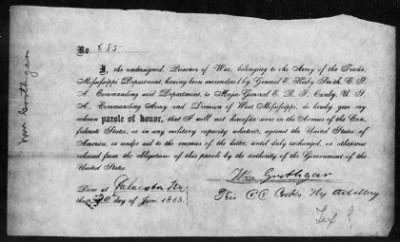 No. 682
I, the undersigned, Prisoner of War, belonging to the Army of the Trans-
Mississippi Department, having been surrendered by General E. Kirby Smith, C. S.
A., Commanding said Department, to Major General E. R. S. Canby, U. S.
A., Commanding Army and Division of West Mississippi, do hereby give my
solemn parole of honor, that I will not hereafter serve in the Armies of the Con-
federate States, or in any military capacity whatever, against the United States of
America, or render aid to the enemies of the latter, until duly exchanged, or otherwise
released from the obligations of this parole by the authority of the Government of the
United States.
Wm
Done at Galveston Tex
this 20 day of June 1865.
Cook's Hy Artillery
Wm